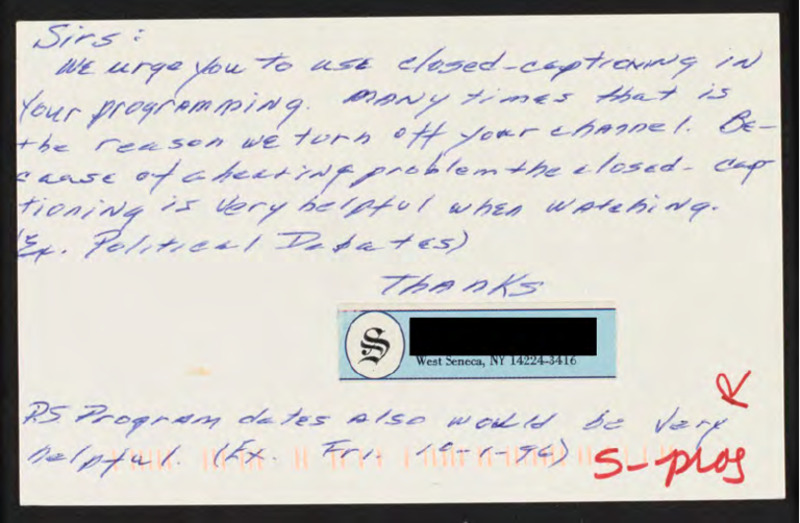 Sirs:
We urge you to use closed-captioning in
your programming. Many times that is
the reason we turn off your channel. Be-
cause of a hearing problem the closed-cap
tioning is very helpful when watching.
(Ex. Political Debates)
Thanks
S
West Seneca, NY 14224-3416
PS Program dates also would be very
helpful. (Ex. Fri.
R
S-prog